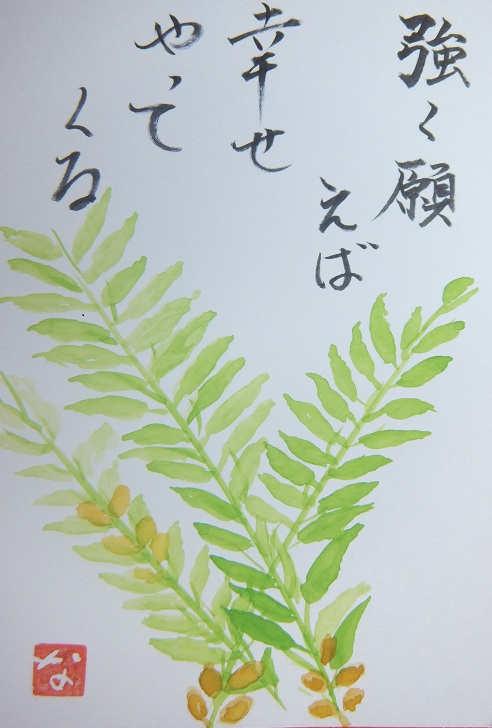 強く願
えば
幸せ
やって
くる
な